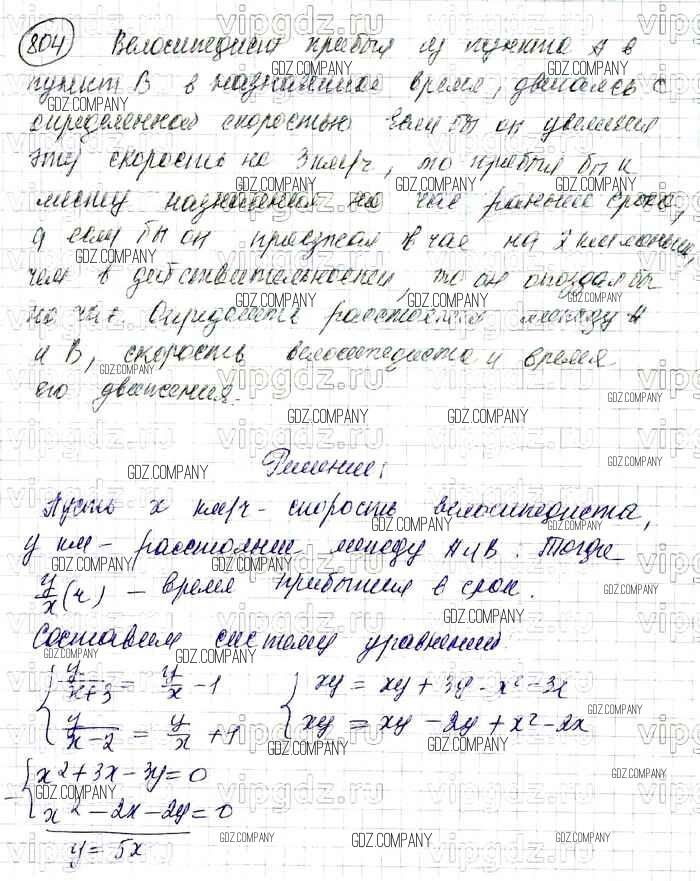 804 Велосипедист прибыл из пункта А в
пункт В в назначенное время, двигаясь с
определенной скоростью. Если бы он увеличил
эту скорость на 3 км/ч, то прибыл бы к
месту назначения на час раньше срока,
а если бы он проезжал в час на 2 км меньше,
чем в действительности, то он опоздал бы
на час. Определите расстояние между А
и В, скорость велосипедиста и время
его движения.
Решение:
Пусть x км/ч - скорость велосипедиста,
y км - расстояние между А и В. Тогда
y/x (ч) - время прибытия в срок.
Составим систему уравнений
{ y/(x+3) = y/x - 1 { xy = xy + 3y - x² - 3x
{ y/(x-2) = y/x + 1 { xy = xy - 2y + x² - 2x
- { x² + 3x - 3y = 0
{ x² - 2x - 2y = 0
y = 5x
vipgdz.ru
GDZ.COMPANY